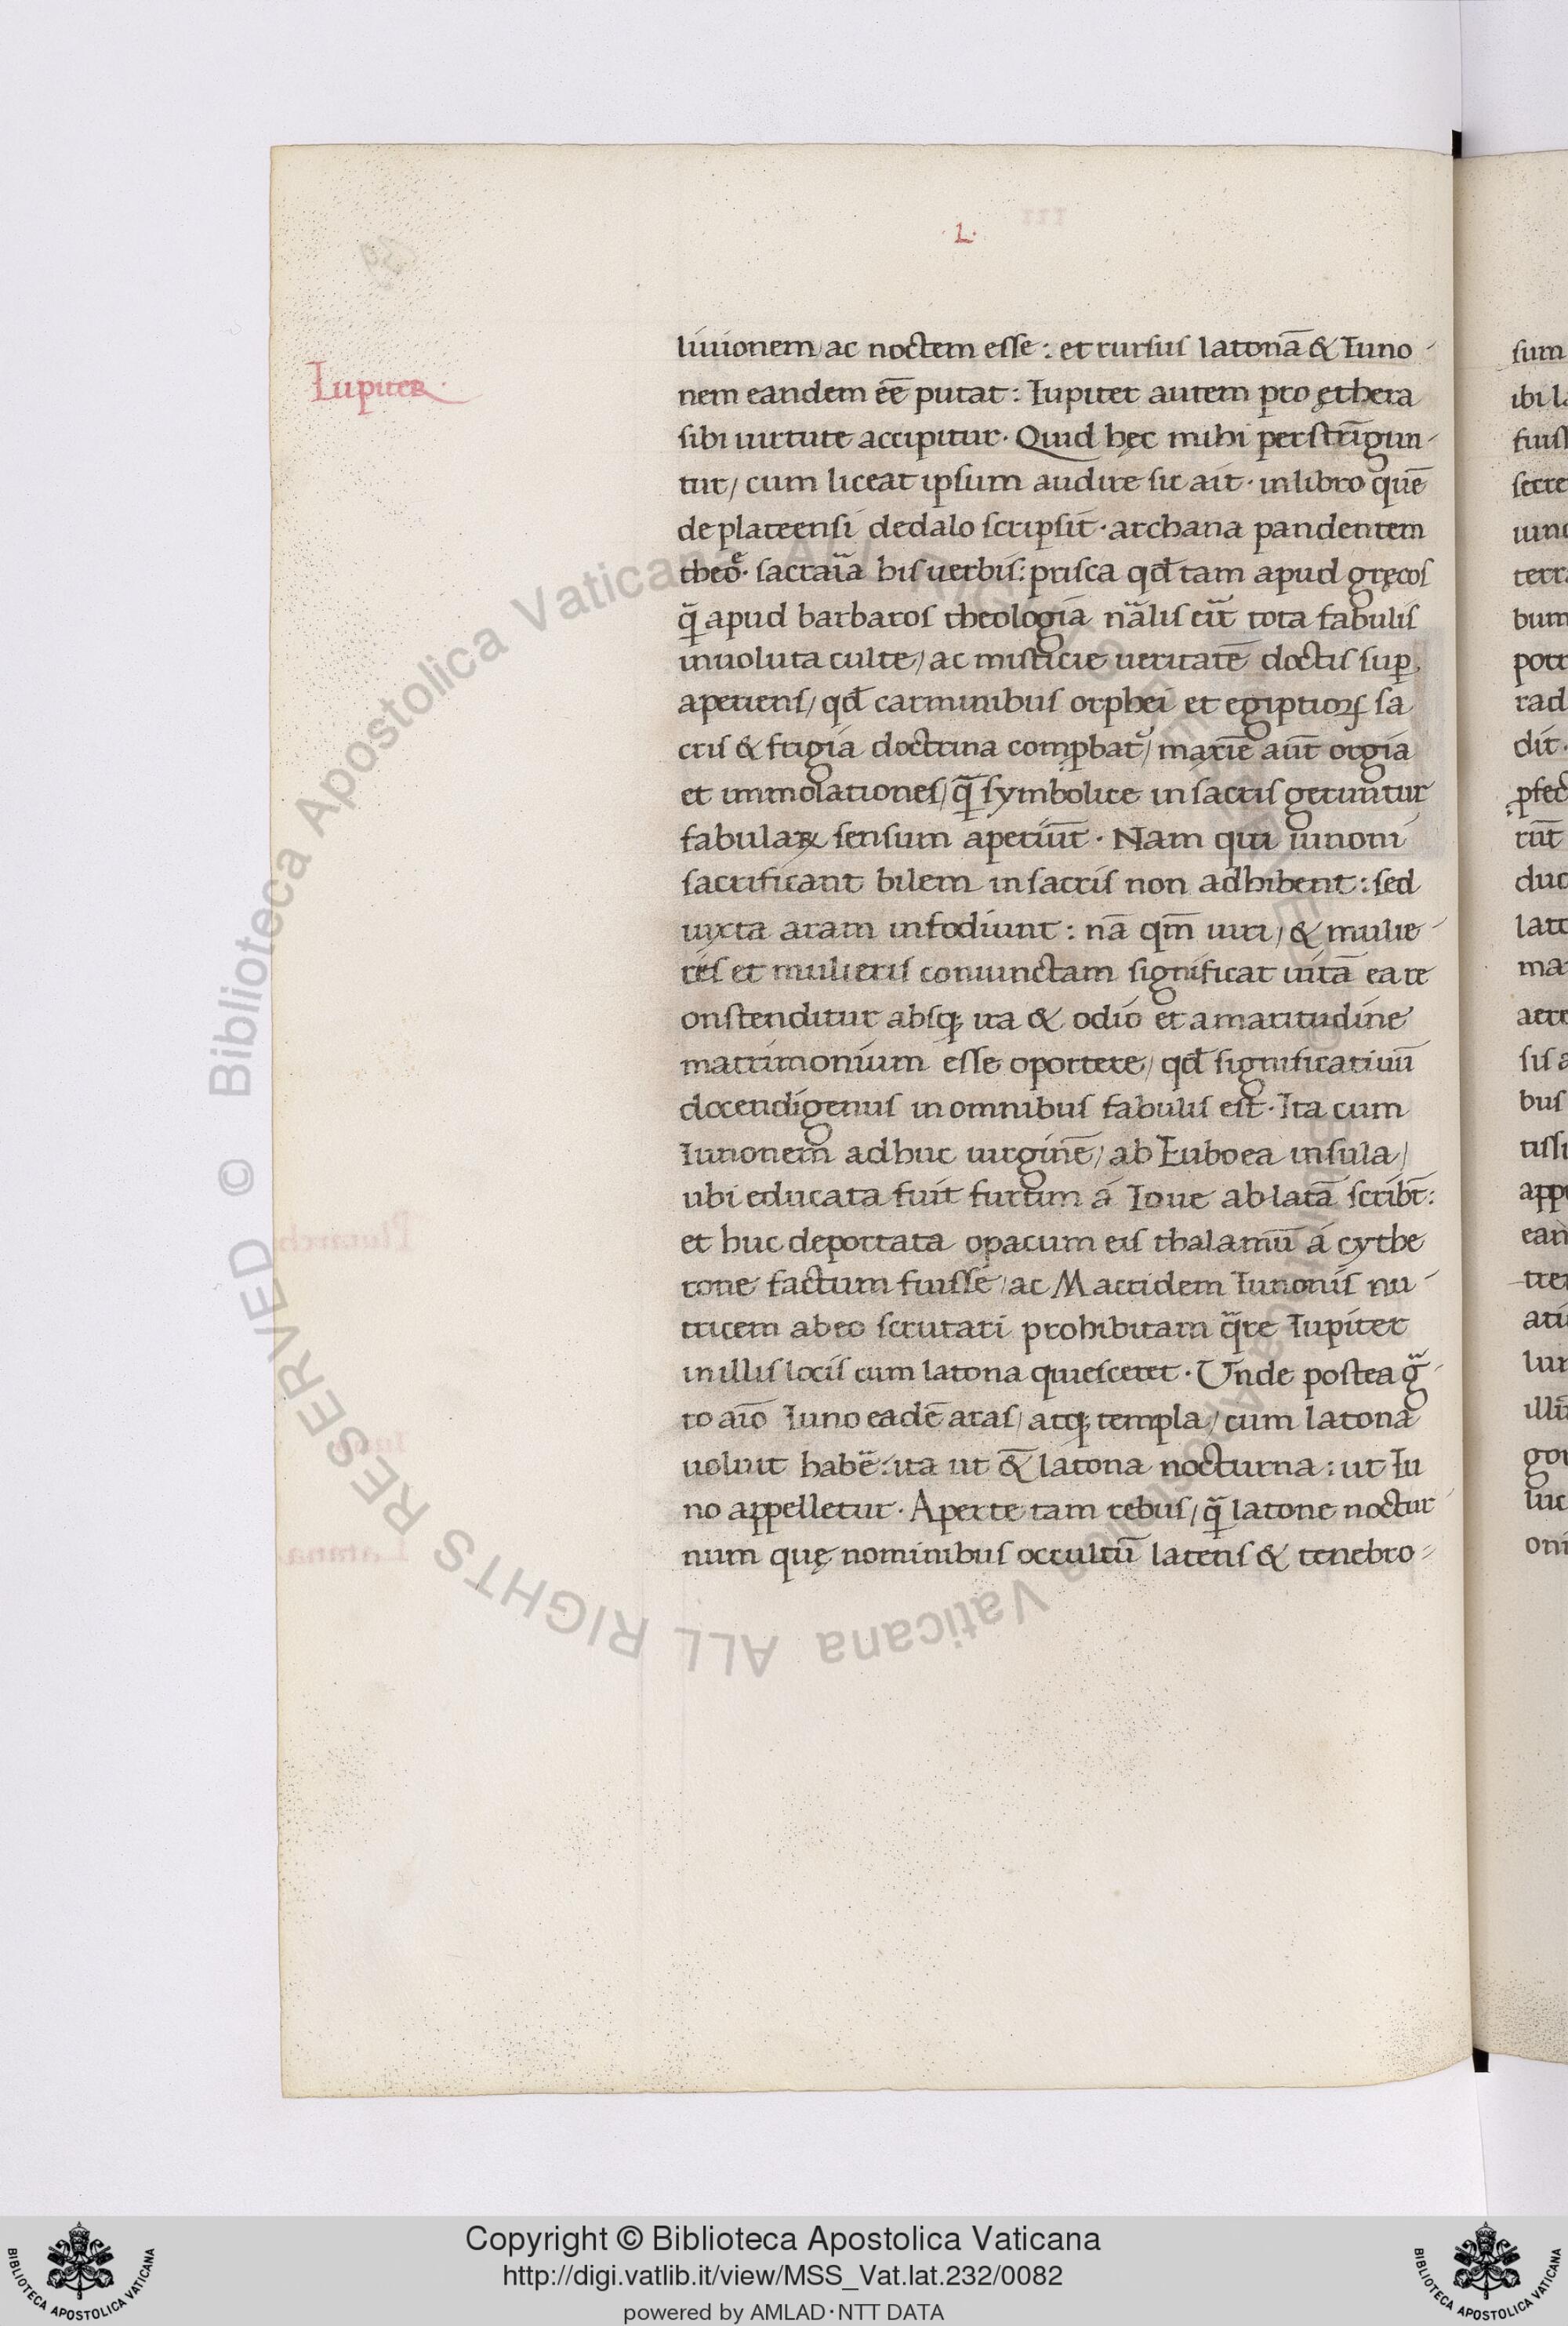 ·L·
Iupiter·
liuionem ac noctem esse: et rursus latonā & Iuno-
nem eandem eē putat: Iupiter autem pro ęthera
sibi uirtute accipitur. Quid hęc mihi perstrīgun-
tur/ cum liceat ipsum audire sic ait· in libro quē
de plateensi dedalo scripsit· archana pandentem
sacra his uerbis: prisca qđ tam apud gręcos
q̄ apud barbaros theologia nālis tota fabulis
inuoluta culte/ ac misticie ueritatē doctis sup
aperiens/ qđ carminibus orphei et egiptioꝝ sa
cris & frigia doctrina maxīe aūt orgia
et immolationes/ q̄ symbolice in sacris geruntur
fabulaꝝ sensum aperiūt· Nam qui iunoni
sacrificant bilem in sacris non adhibent: sed
iuxta aram infodiunt: nā qm̄ uiri/ & mulie-
res et mulieris coniunctam significat uitā ea re
onstenditur absq; ira & odio et amaritudine
matrimonium esse oportere/ qđ significatiuū
docendi genus in omnibus fabulis est· Ita cum
Iunonem adhuc uirginē/ ab Euboea insula/
ubi educata fuit furtim á Ioue ablatā scribt̄:
et huc deportata opacum eis thalamū á cythe
rone factum fuisse/ ac Macridem Iunonis nu-
tricem ab eo scrutari prohibitam q̄re Iupiter
in illis locis cum latona quiesceret· Unde postea g̃-
to aīo Iuno eadē aras/ atq; templa/ cum latona
uoluit habē: ita ut & latona nocturna: ut Iu
no appelletur· Aperte tam rebus/ q̄ latone noctur
num quę nominibus occultū latens & tenebro-
Copyright © Biblioteca Apostolica Vaticana
http://digi.vatlib.it/view/MSS_Vat.lat.232/0082
powered by AMLAD·NTT DATA
BIBLIOTECA APOSTOLICA VATICANA
BIBLIOTECA APOSTOLICA VATICANA
© Biblioteca Apostolica Vaticana ALL RIGHTS RESERVED © Biblioteca Apostolica Vaticana ALL RIGHTS RESERVED